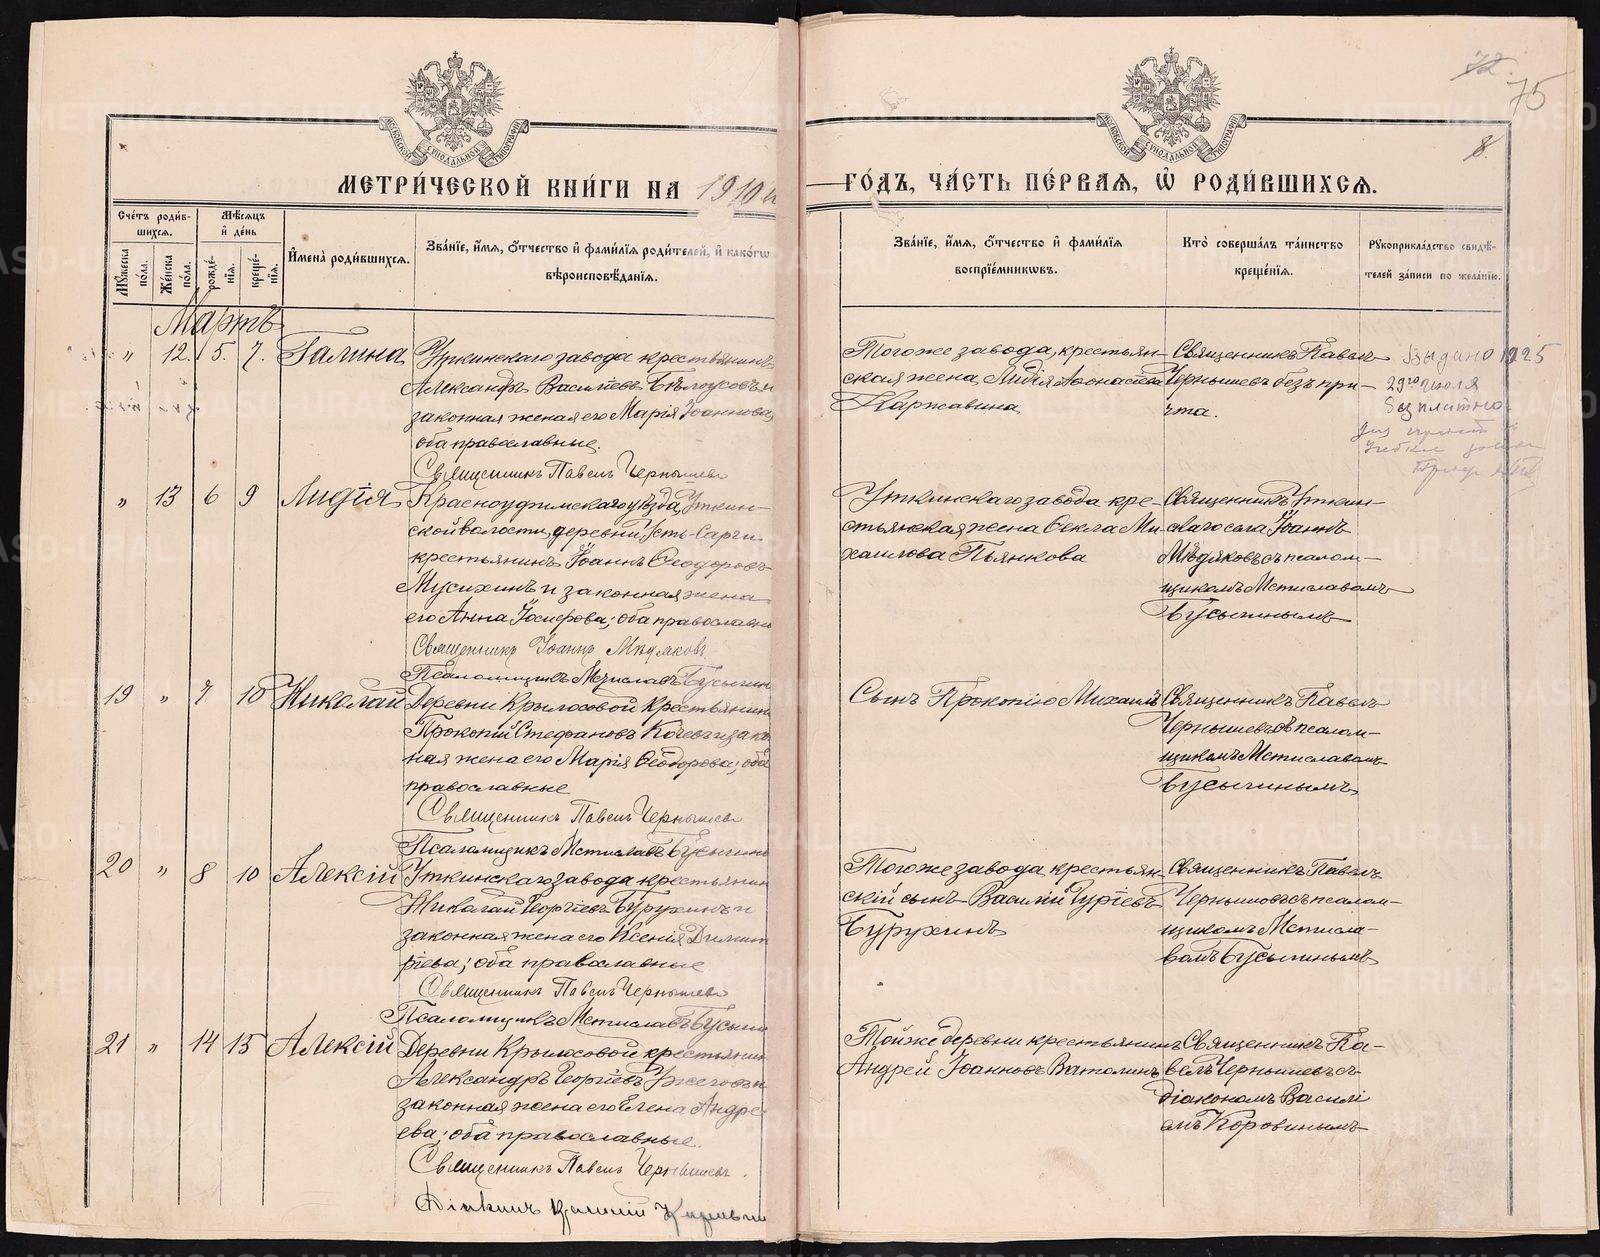 72
75
8.
МОСКОВСКОЙ СѴНОДАЛЬНОЙ ТИПОГРАФІИ
МОСКОВСКОЙ СѴНОДАЛЬНОЙ ТИПОГРАФІИ
МЕТРИ́ЧЕСКОЙ КНИ́ГИ НА 1910й
ГО́ДЪ, ЧА́СТЬ ПЕ́РВАЯ, Ѿ РОДИ́ВШИХСЯ.
Сче́тъ роди́вшихся.
Мꙋ́жеска по́ла.
Же́нска по́ла.
Мѣ́сяцъ и҆ де́нь
рожде́нїя.
креще́нїя.
И҆мена̀ роди́вшихся.
Зва́нїе, и҆́мя, ѻ҆́тчество и҆ фами́лїя роди́телей, и҆ како́гѡ
вѣроисповѣ́данїя.
Зва́нїе, и҆́мя, ѻ҆́тчество и҆ фами́лїя
воспрїе́мникѡвъ.
Кто̀ соверша́лъ та́инство
креще́нїя.
Рꙋкоприкла́дство свидѣ́-
телей за́писи по жела́нїю.
Мартъ
" 12. 5. 7. Галина
Уткинскаго завода крестьянинъ
Александръ Василіевъ Бѣлоусовъ и
законная жена его Марія Іоаннова,
оба православные.
Священникъ Павелъ Чернышевъ
Того же завода, крестьян-
ская жена, Лидія Аѳонасіева
Каржавина
Священникъ Павелъ
Чернышевъ безъ при-
чта.
Выдано 1925
29го июля
бесплатно
" 13 6 9 Лидія
Красноуфимскаго уѣзда, Уткин-
ской волости, деревни Усть-Сарги
крестьянинъ Іоаннъ Ѳеодоровъ
Мусихинъ и законная жена
его Анна Іосифова; оба православн
Священникъ Іоаннъ Мѣдяковъ
Псаломщикъ Мстиславъ Бусыгинъ
Уткинскаго завода кре-
стьянская жена Ѳекла Ми-
хаилова Пьянкова
Священникъ Уткин-
скаго села Іоаннъ
Мѣдяковъ съ псалом-
щикомъ Мстиславомъ
Бусыгинымъ
19 " 7 10 Николай
Деревни Крылосовой крестьянинъ
Прокопій Стефановъ Кочевъ и закон-
ная жена его Марія Ѳеодорова; оба
православные
Священникъ Павелъ Чернышевъ
Псаломщикъ Мстиславъ Бусыгинъ
Сынъ Прокопію Михаилъ
Священникъ Павелъ
Чернышевъ съ псалом-
щикомъ Мстиславомъ
Бусыгинымъ
20 " 8 10 Алексій
Уткинскаго завода крестьянин
Николай Георгіевъ Бурухинъ и
законная жена его Ксенія Димит
ріева; оба православные
Священникъ Павелъ Чернышевъ
Псаломщикъ Мстиславъ Бусыгин
Того же завода крестьян-
скій сынъ Василій Гуріевъ
Бурухинъ
Священникъ Павелъ
Чернышовъ съ псалом-
щикомъ Мстисла-
вомъ Бусыгинымъ
21 " 14 15 Алексій
Деревни Крылосовой крестьянин
Александръ Георгіевъ Ужеговъ и
законная жена его Елена Андре-
ева; оба православные.
Священникъ Павелъ Чернышевъ.
Діаконъ Василій
Той же деревни крестьянинъ
Андрей Іоанновъ Ватолинъ
Священникъ Па-
велъ Чернышевъ съ
діакономъ Василі
емъ Коровинымъ
METRIKI.GASO-URAL.RU